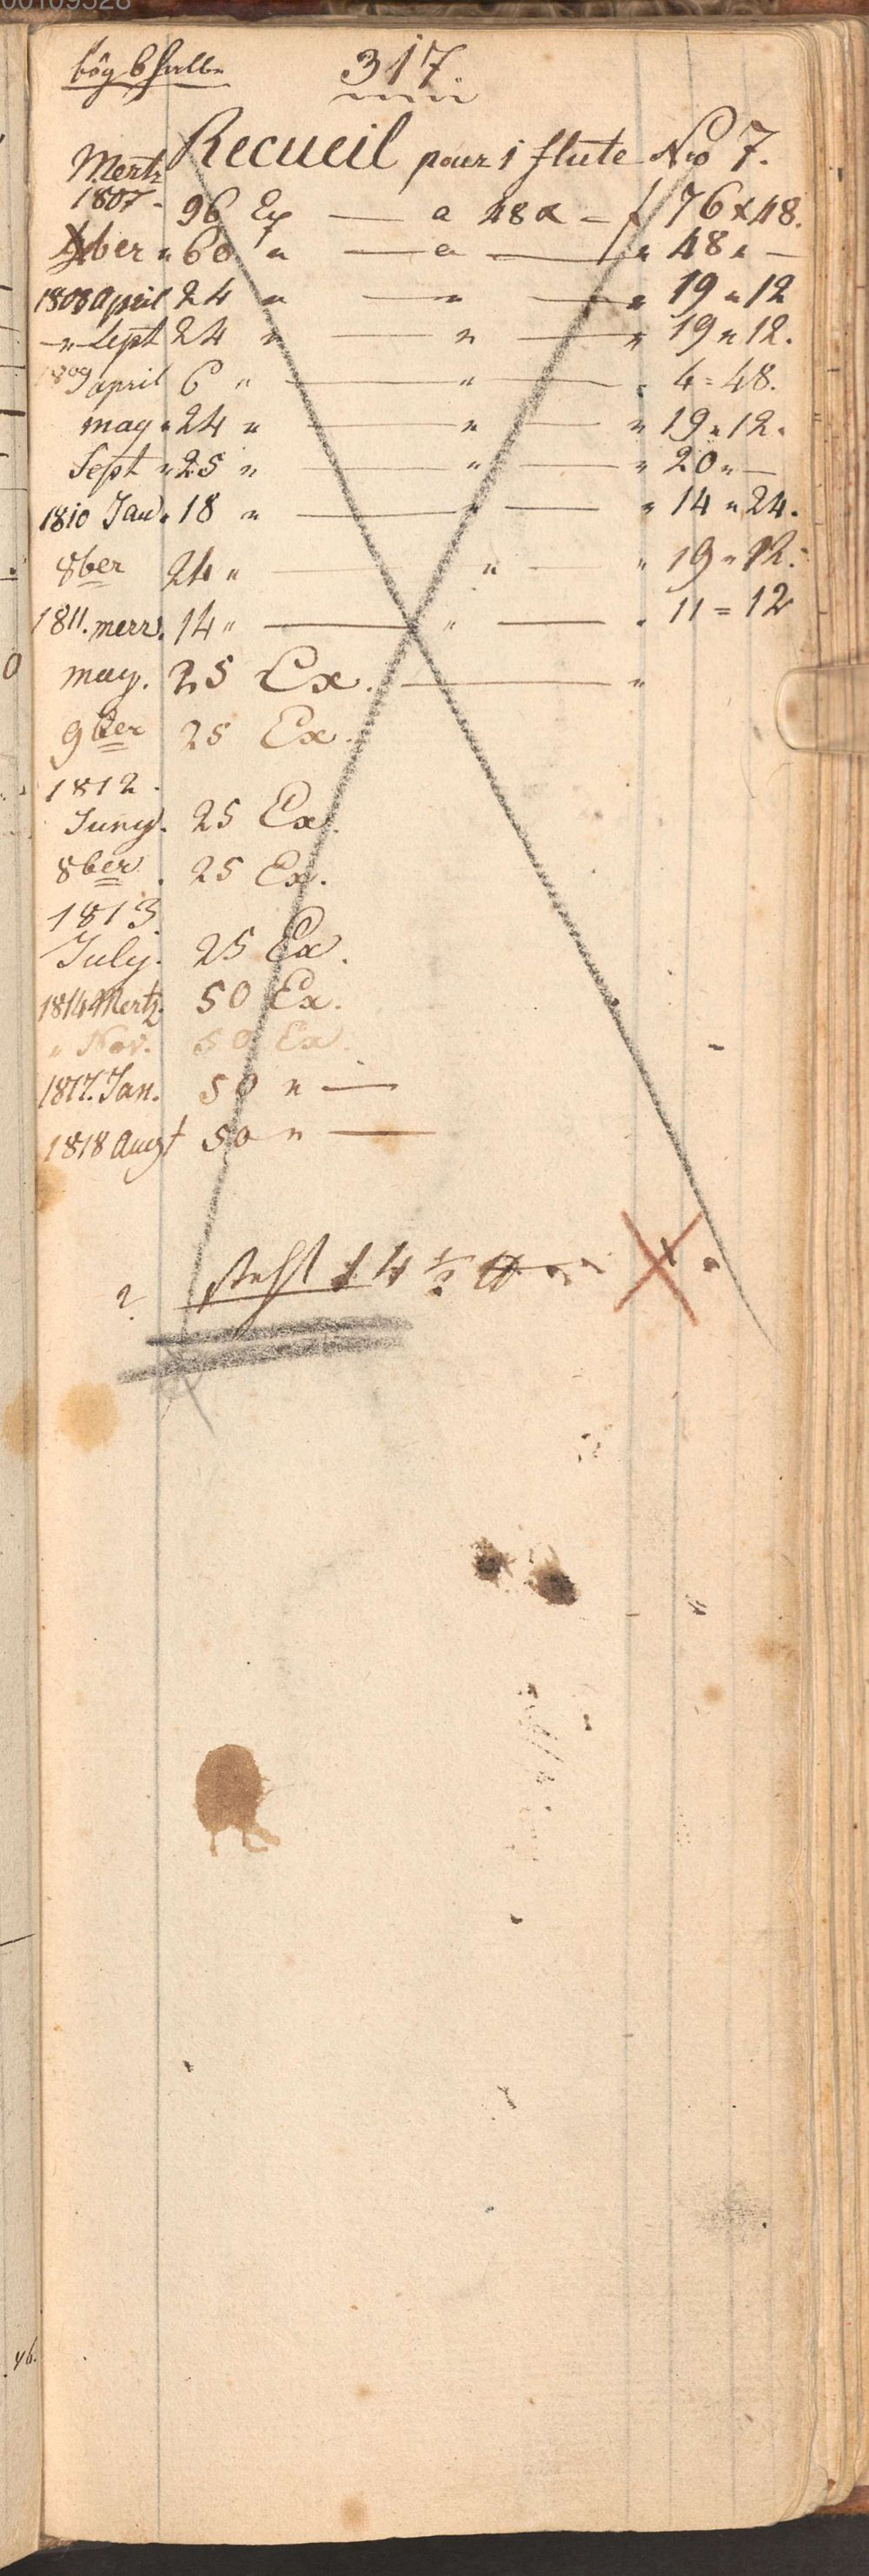 00109528
bög 6 halbe
317.
Recueil pour 1 flute Nro 7.
Mertz
1807 - 96 Ex — a 48 x = f 76 x 48.
Xber " 60 " — a — " 48 " —
1808 april 24 " — " — " 19 " 12
— " Sept 24 " — " — " 19 " 12.
1809 april 6 " — " — " 4 = 48.
may " 24 " — " — " 19 " 12.
Sept " 25 " — " — " 20 " —
1810 Jan. 18 " — " — " 14 " 24.
8ber 24 " — " — " 19 " 12.
1811. merz. 14 " — " — " 11 = 12
may. 25 Ex. — "
9ber 25 Ex.
1812.
Juny. 25 Ex.
8ber. 25 Ex.
1813.
July. 25 Ex.
1814 Mertz. 50 Ex.
" Nov. 50 Ex.
1817. Jan. 50 " —
1818 Augt 50 " —
2. steht 14 1/2